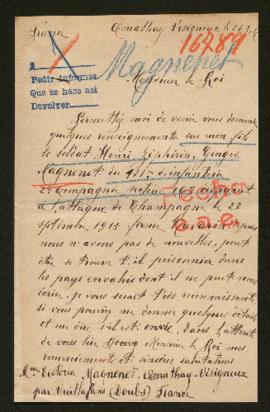 France Amathay Vesigneux le
16284
Magnenet
A
Pedir informes
Que se hace así
Devolver
Monsieur le Roi
Permettez moi de venir vous demander
quelques renseignements sur mon fils
le soldat Henri Zéphirin Georges
Magnenet du d'infanterie
Compagnie disparut
à l'attaque de Champagne le 22
septembre 1915 ferme Navarin depuis
nous n'avons pas de nouvelles, peut
être se trouve t. il prisonnier dans
les pays envahis dont il ne peut nous
écrire, je vous serait très reconnaissante
si vous pouviez me donner quelques détails
et me dire s'il est en vie. Dans l'attente
de vous lire Monsieur le Roi mes
remerciements et sincères salutations
Mme Victoria Magnenet, Amathay-Vésigneux
par Vuillafans (Doubs) France